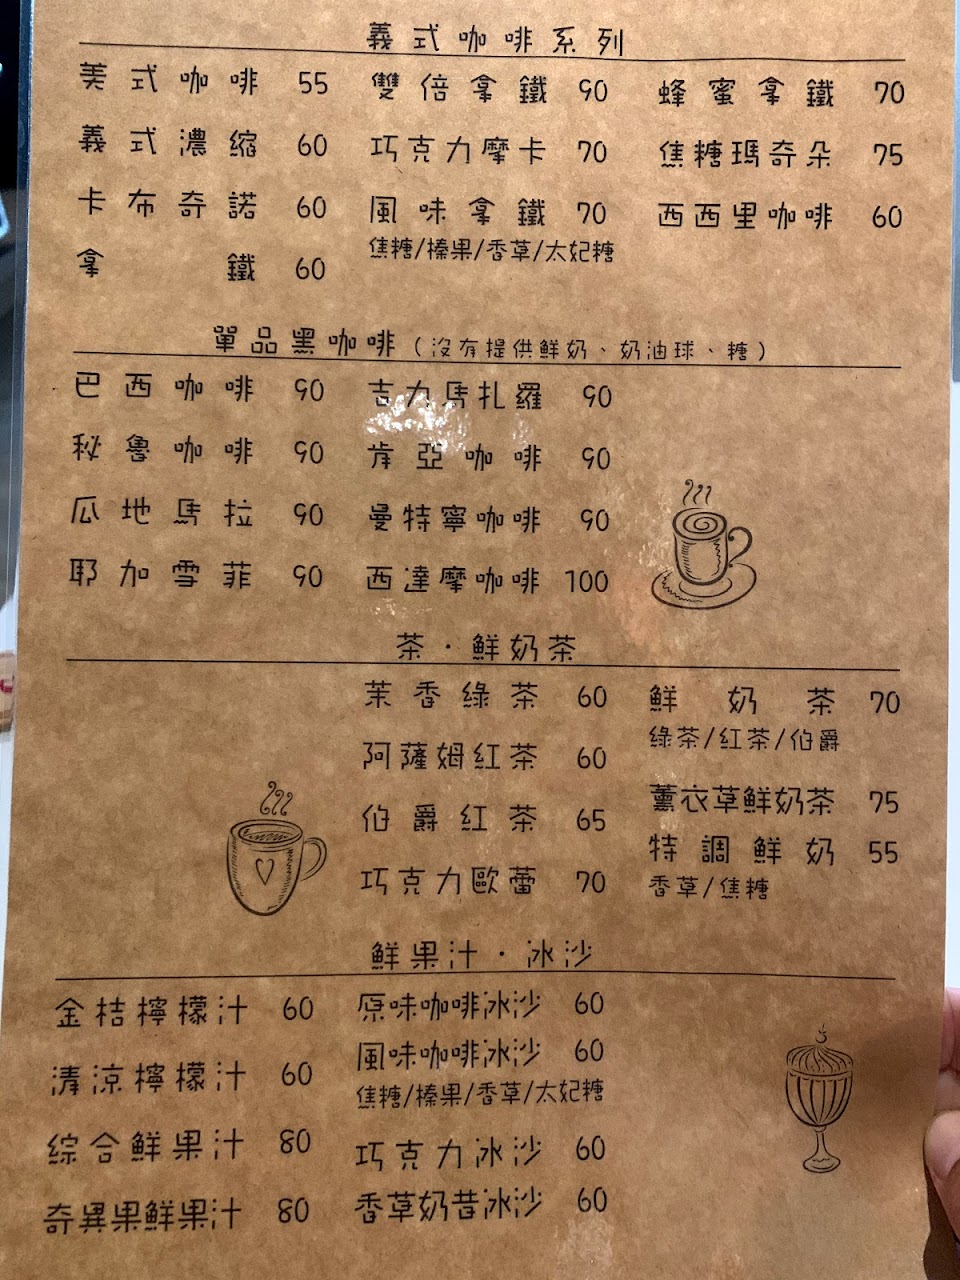 義式咖啡系列
美式咖啡 55
義式濃縮 60
卡布奇諾 60
拿鐵 60
雙倍拿鐵 90
巧克力摩卡 70
風味拿鐵 70
焦糖/榛果/香草/太妃糖
蜂蜜拿鐵 70
焦糖瑪奇朵 75
西西里咖啡 60
單品黑咖啡（沒有提供鮮奶、奶油球、糖）
巴西咖啡 90
秘魯咖啡 90
瓜地馬拉 90
耶加雪菲 90
吉力馬扎羅 90
肯亞咖啡 90
曼特寧咖啡 90
西達摩咖啡 100
茶·鮮奶茶
茉香綠茶 60
阿薩姆紅茶 60
伯爵紅茶 65
巧克力歐蕾 70
鮮奶茶 70
綠茶/紅茶/伯爵
薰衣草鮮奶茶 75
特調鮮奶 55
香草/焦糖
鮮果汁·冰沙
金桔檸檬汁 60
清涼檸檬汁 60
綜合鮮果汁 80
奇異果鮮果汁 80
原味咖啡冰沙 60
風味咖啡冰沙 60
焦糖/榛果/香草/太妃糖
巧克力冰沙 60
香草奶昔冰沙 60